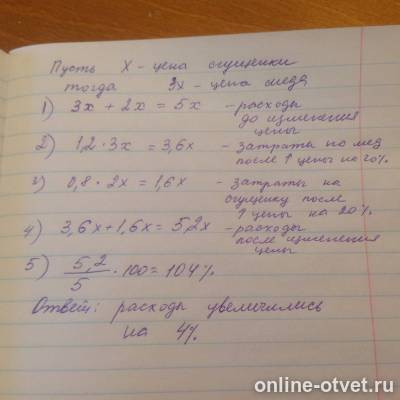 Пусть х - цена сгущенки
тогда 3х - цена меда
1) 3х + 2х = 5х - расходы
до изменения
цены
2) 1,2 · 3х = 3,6х - затраты на мед
после ↑ цены на 20%
3) 0,8 · 2х = 1,6х - затраты на
сгущенку после
↑ цены на 20%.
4) 3,6х + 1,6х = 5,2х - расходы
после изменения
цены
5) 5,2/5 · 100 = 104%
Ответ: расходы увеличились
на 4%.
online-otvet.ru